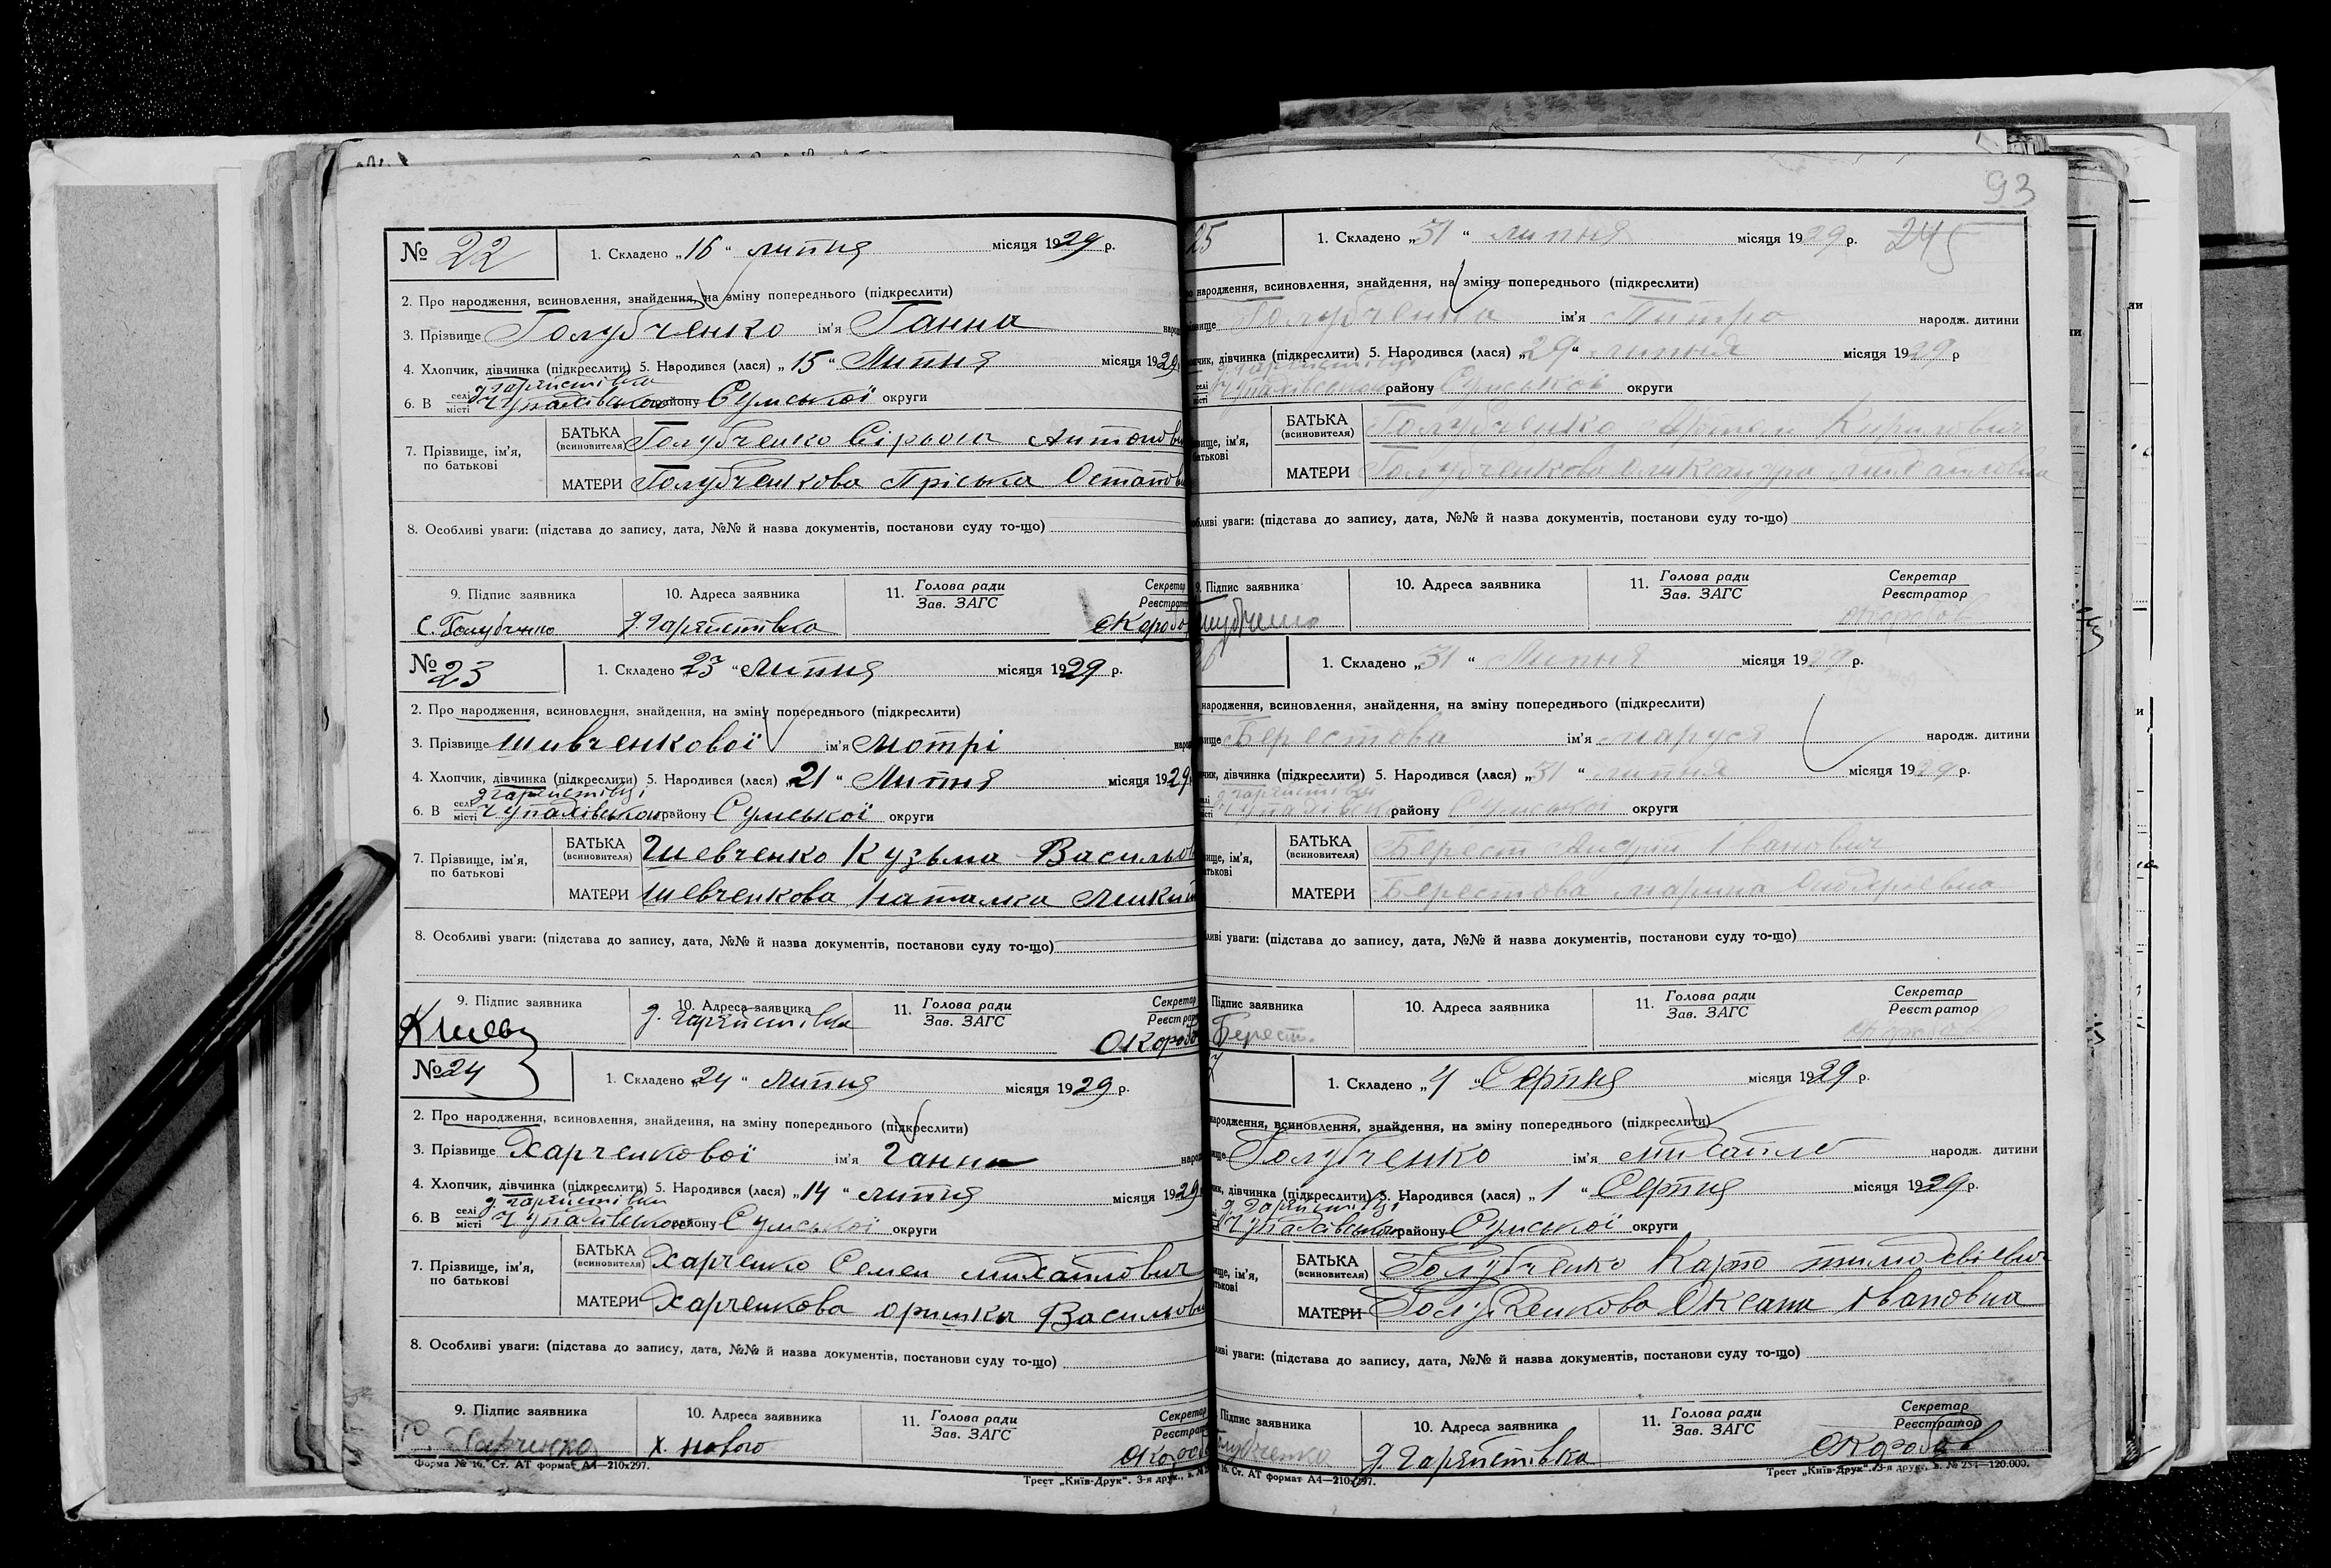 № 22
1. Складено „16“ липня місяця 1929 р.
2. Про народження, всиновлення, знайдення, на зміну попереднього (підкреслити)
3. Прізвище Голубченко ім'я Ганна
4. Хлопчик, дівчинка (підкреслити) 5. Народився (лася) „15“ Липня місяця 1929
6. В селі місті Чупахівського району Сумської округи
7. Прізвище, ім'я, по батькові
БАТЬКА (всиновителя) Голубченко
МАТЕРИ Голубченкова Пріська
8. Особливі уваги: (підстава до запису, дата, №№ й назва документів, постанови суду то-що)
9. Підпис заявника 10. Адреса заявника 11. Голова ради Зав. ЗАГС Секретар
С. Голубченко
№ 23
1. Складено 23 “ Липня місяця 1929 р.
2. Про народження, всиновлення, знайдення, на зміну попереднього (підкреслити)
3. Прізвище Шевченкової ім'я Мотрі
4. Хлопчик, дівчинка (підкреслити) 5. Народився (лася) 21 “ Липня місяця 1929
6. В селі місті Чупахівського району Сумської округи
7. Прізвище, ім'я, по батькові
БАТЬКА (всиновителя) Шевченко Кузьма Васильов
МАТЕРИ Шевченкова Наталка
8. Особливі уваги: (підстава до запису, дата, №№ й назва документів, постанови суду то-що)
9. Підпис заявника 10. Адреса заявника 11. Голова ради Зав. ЗАГС Секретар
№ 24
1. Складено „24“ Липня місяця 1929 р.
2. Про народження, всиновлення, знайдення, на зміну попереднього (підкреслити)
3. Прізвище Харченкової ім'я Ганни
4. Хлопчик, дівчинка (підкреслити) 5. Народився (лася) „14“ липня місяця 1929
6. В селі місті Чупахівського району Сумської округи
7. Прізвище, ім'я, по батькові
БАТЬКА (всиновителя) Харченко Семен Михайлович
МАТЕРИ Харченкова Оришка
8. Особливі уваги: (підстава до запису, дата, №№ й назва документів, постанови суду то-що)
9. Підпис заявника 10. Адреса заявника 11. Голова ради Зав. ЗАГС Секретар
Форма № 16. Ст. АТ формат А4—210x297.
Трест „Київ-Друк“. 3-я друк.
93
245
25
1. Складено „31“ липня місяця 1929 р.
народження, всиновлення, знайдення, на зміну попереднього (підкреслити)
Голубченка ім'я Питро народж. дитини
дівчинка (підкреслити) 5. Народився (лася) „29“ липня місяця 1929 р
Чупахівського району Сумської округи
БАТЬКА (всиновителя) Голубченко Кирилович
МАТЕРИ Голубченкова
уваги: (підстава до запису, дата, №№ й назва документів, постанови суду то-що)
9. Підпис заявника 10. Адреса заявника 11. Голова ради Зав. ЗАГС Секретар Реєстратор
1. Складено „31“ Липня місяця 1929 р.
народження, всиновлення, знайдення, на зміну попереднього (підкреслити)
Берестова ім'я Маруся народж. дитини
дівчинка (підкреслити) 5. Народився (лася) „31“ липня місяця 1929 р.
Чупахівського району Сумської округи
БАТЬКА (всиновителя) Берест Андрій Іванович
МАТЕРИ Берестова Марина
уваги: (підстава до запису, дата, №№ й назва документів, постанови суду то-що)
Підпис заявника 10. Адреса заявника 11. Голова ради Зав. ЗАГС Секретар Реєстратор
Берест.
1. Складено „4“ Серпня місяця 1929 р.
народження, всиновлення, знайдення, на зміну попереднього (підкреслити)
Голубченко ім'я Михайло народж. дитини
дівчинка (підкреслити) 5. Народився (лася) „1“ Серпня місяця 1929 р.
Чупахівського району Сумської округи
БАТЬКА (всиновителя) Голубченко Карпо
МАТЕРИ Голубченкова Оксана Івановна
уваги: (підстава до запису, дата, №№ й назва документів, постанови суду то-що)
Підпис заявника 10. Адреса заявника 11. Голова ради Зав. ЗАГС Секретар Реєстратор
Ст. АТ формат А4—210x297.
Трест „Київ-Друк“. 3-я друк., з. № 254—120.000.